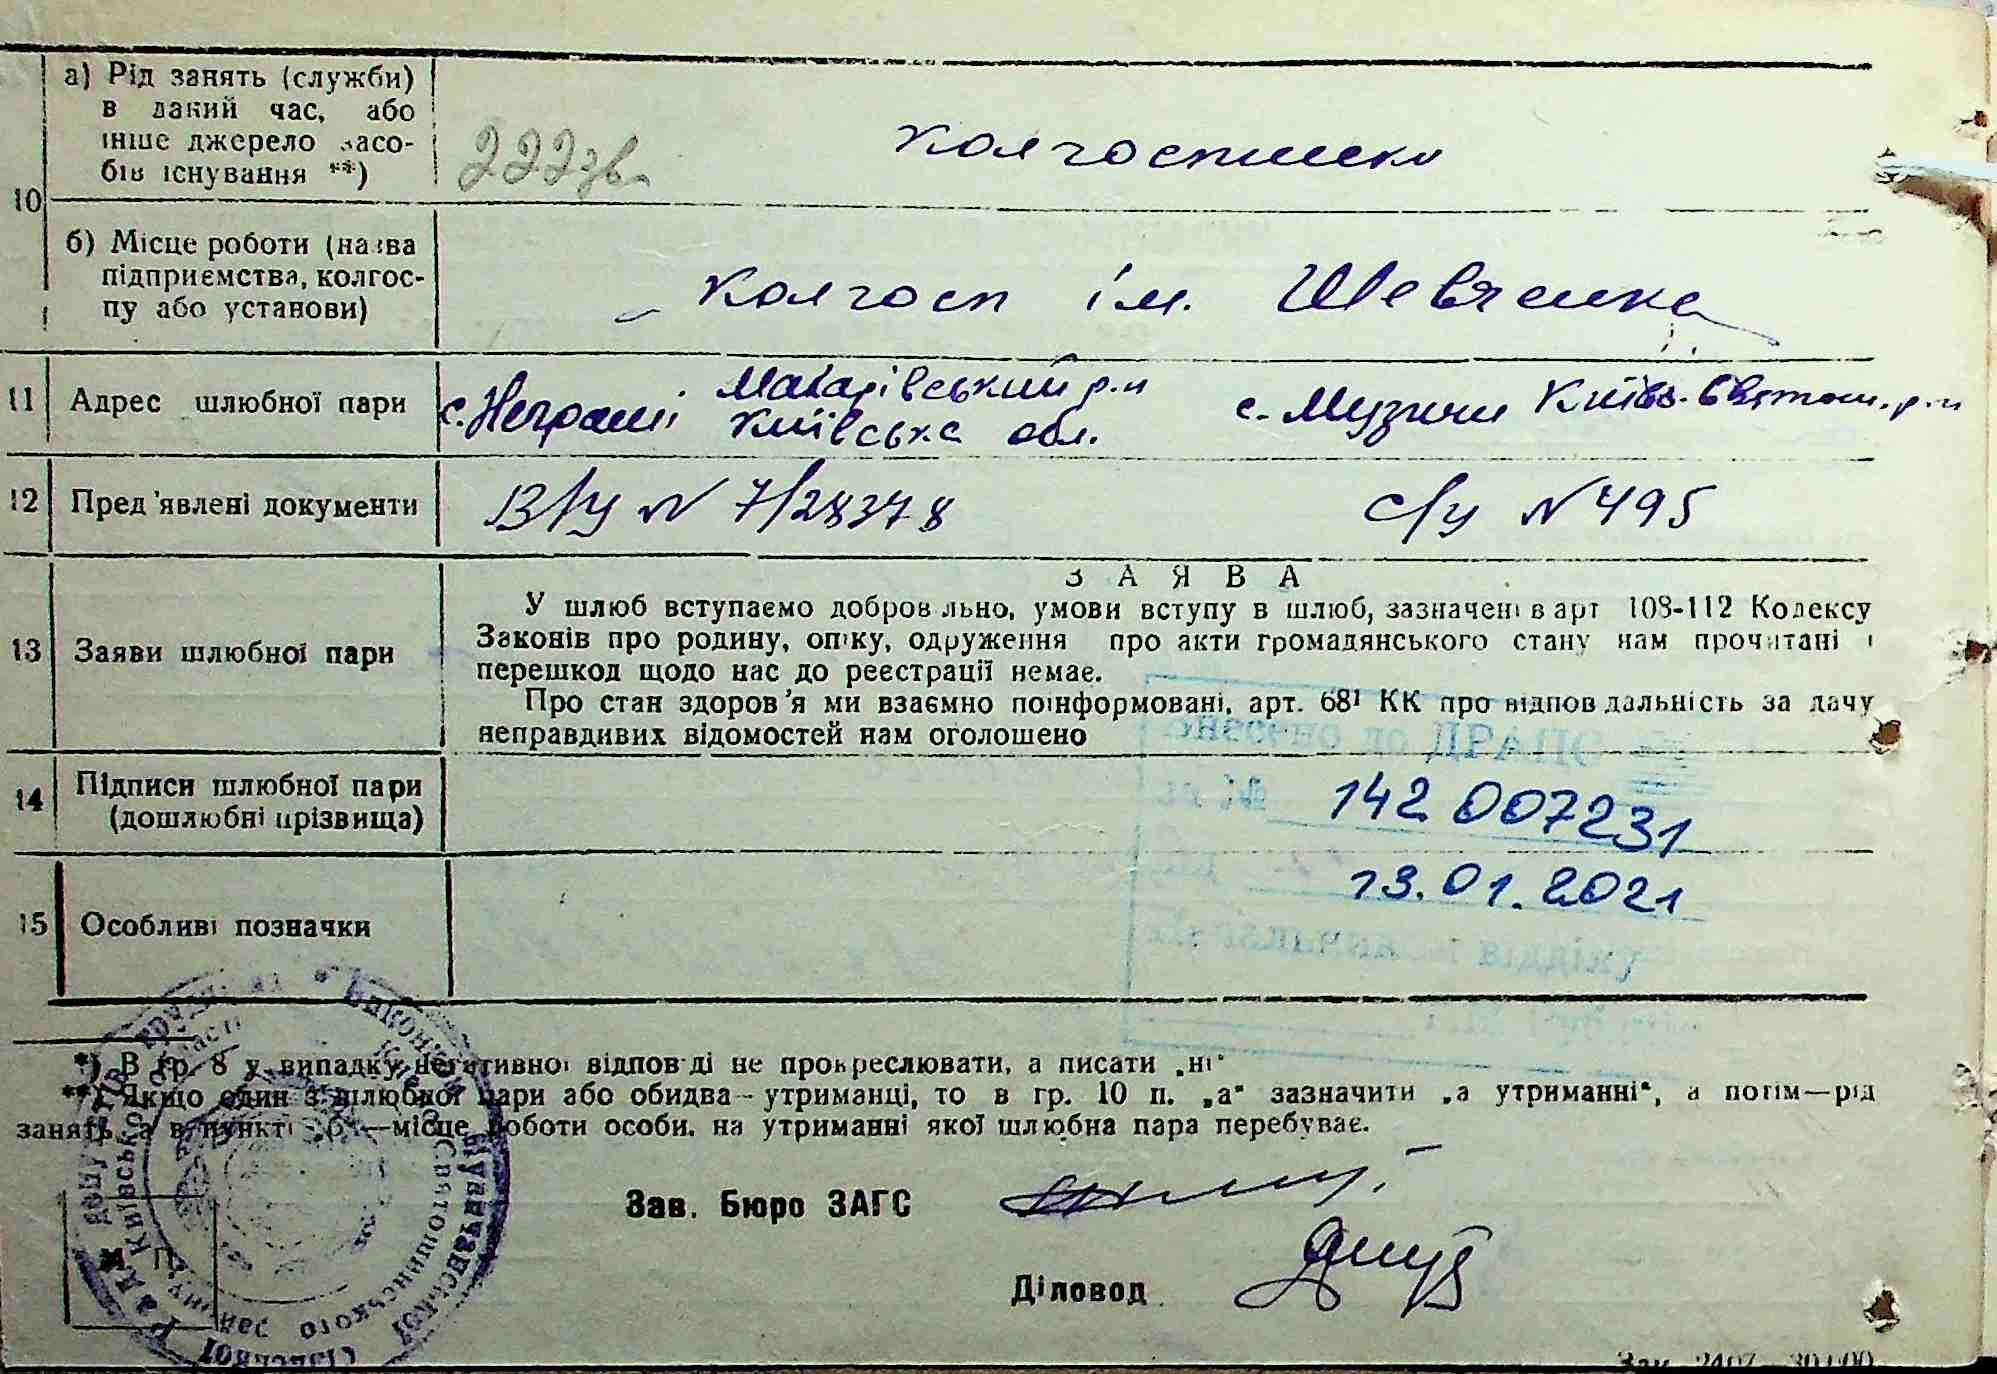 10
а) Рід занять (служби)
в даний час, або
інше джерело засо-
бів існування **)
колгоспники
б) Місце роботи (назва
підприємства, колгос-
пу або установи)
Колгосп ім. Шевченка
11 Адрес шлюбної пари
с. Неграші Макарівський р-н
Київська обл.
с. Музичи Київо-Святош. р-н
12 Пред'явлені документи
В/у N 7/28378
с/у N 495
13 Заяви шлюбної пари
ЗАЯВА
У шлюб вступаємо добровільно, умови вступу в шлюб, зазначені в арт 108-112 Кодексу
Законів про родину, опіку, одруження про акти громадянського стану нам прочитані і
перешкод щодо нас до реєстрації немає.
Про стан здоров'я ми взаємно поінформовані, арт. 68¹ КК про відповідальність за дачу
неправдивих відомостей нам оголошено
14 Підписи шлюбної пари
(дошлюбні прізвища)
внесено до ДРАЦС
за № 142 007231
13.01.2021
відділу
15 Особливі позначки
*) В гр. 8 у випадку негативної відповіді не прокреслювати, а писати „ні"
**) Якщо один з шлюбної пари або обидва – утриманці, то в гр. 10 п. „а" зазначити „а утриманні", а потім—рід
занять, а в пункті „б"—місце роботи особи, на утриманні якої шлюбна пара перебуває.
Зав. Бюро ЗАГС
Діловод
М. П.
Зак. 2407